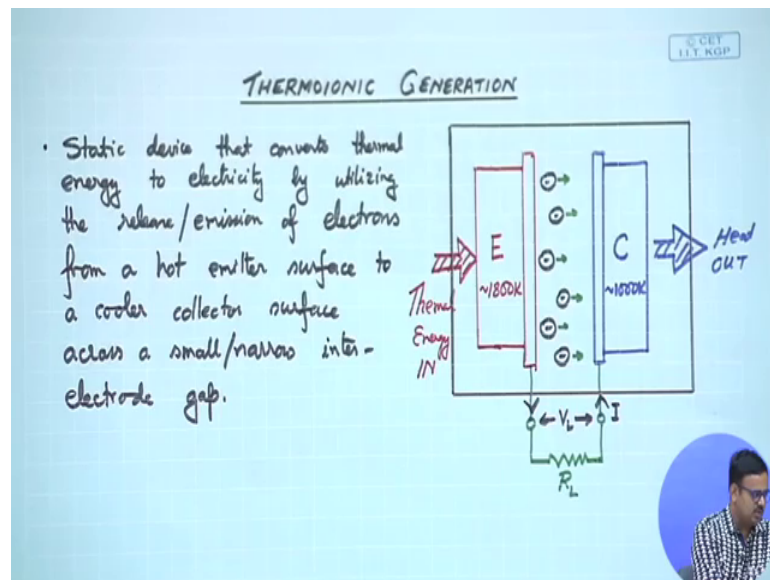 © CET
I.I.T. KGP
THERMOIONIC GENERATION
• Static device that converts thermal
energy to electricity by utilizing
the release/emission of electrons
from a hot emitter surface to
a cooler collector surface
across a small/narrow inter-
electrode gap.
E
~1800K
C
~1000K
Thermal
Energy
IN
Head
OUT
V_L
I
R_L